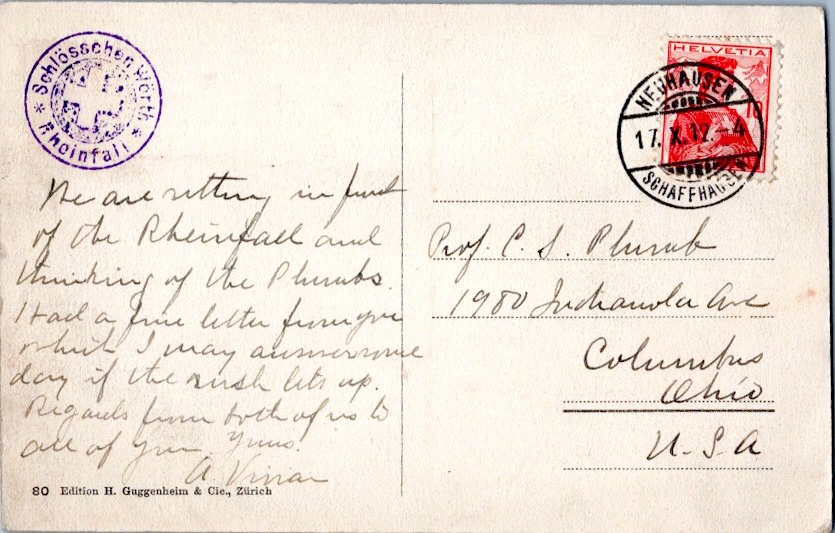 * Schlösschen Wörth *
Rheinfall
HELVETIA
10
NEUHAUSEN
17. X. 12.-4
SCHAFFHAUSEN
We are sitting in front
of the Rheinfall and
thinking of the Plumbs.
Had a fine letter from you
which I may answer some
day if the rush lets up.
Regards from both of us to
all of you. Yours.
A.
Prof. C. S. Plumb
1980 Indianola Ave
Columbus
Ohio
U.S.A
80 Edition H. Guggenheim & Cie., Zürich